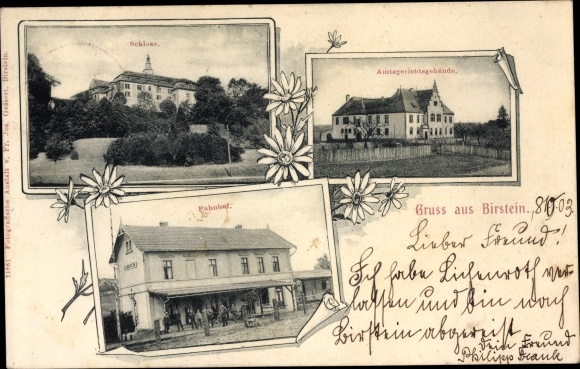 Schloss.
Amtsgerichtsgebäude.
Bahnhof.
Gruss aus Birstein,
Lieber Freund!
Ich habe Lichenroth ver
lassen und bin nach
Birstein abgereist
Dein Freund
Philipp Frank
71881 Fotografische Anstalt v. Fr. Jos. Geisert, Birstein.